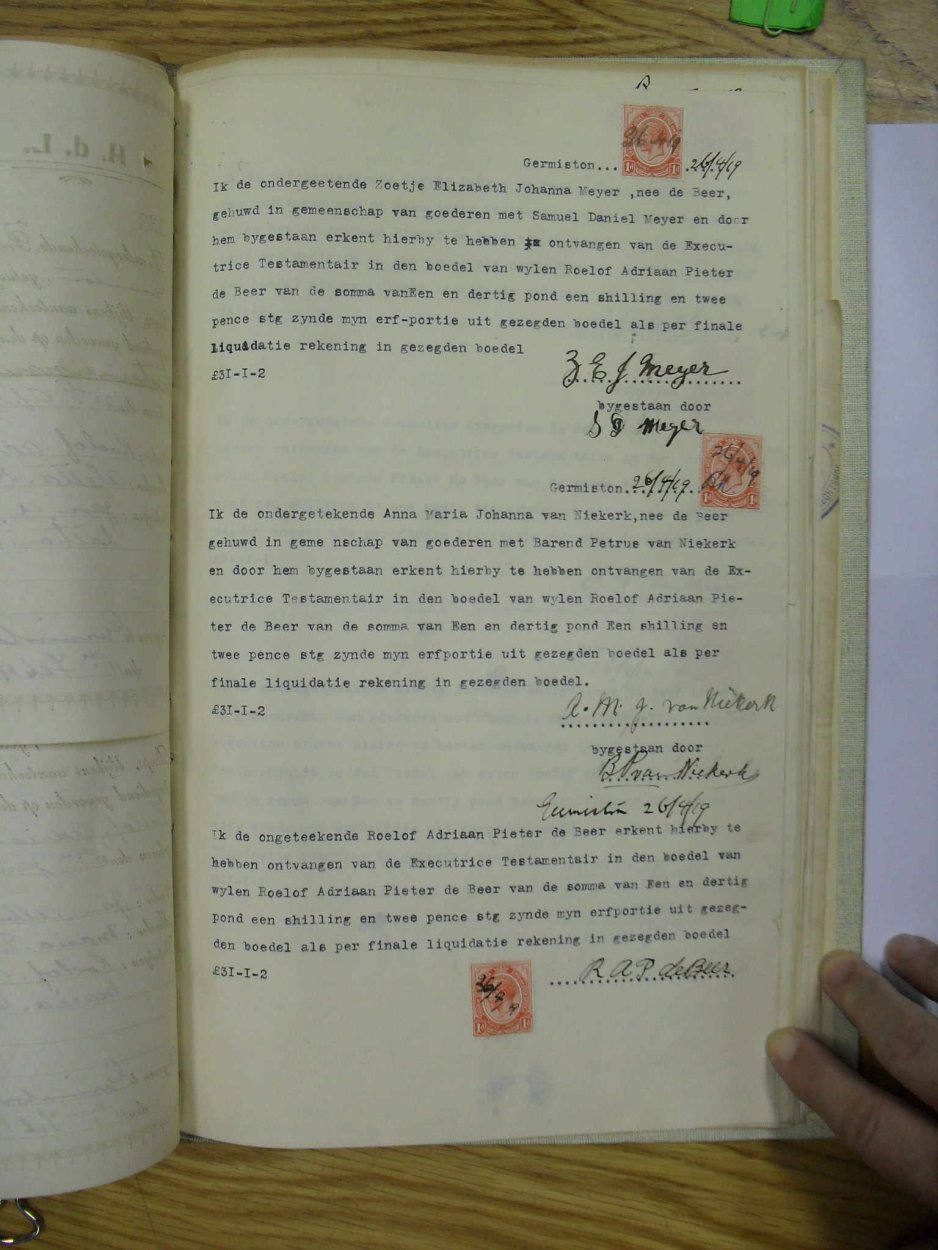 B
26.4.19
Germiston... .26/4/19
Ik de ondergeetende Zoetje Elizabeth Johanna Meyer ,nee de Beer,
gehuwd in gemeenschap van goederen met Samuel Daniel Meyer en door
hem bygestaan erkent hierby te hebben ontvangen van de Execu-
trice Testamentair in den boedel van wylen Roelof Adriaan Pieter
de Beer van de somma vanEen en dertig pond een shilling en twee
pence stg zynde myn erf-portie uit gezegden boedel als per finale
liquidatie rekening in gezegden boedel
£3I-I-2
Z. E. J Meyer
bygestaan door
S D Meyer
26/4/19
Germiston.26/4/19.
Ik de ondergetekende Anna Maria Johanna van Niekerk,nee de Beer
gehuwd in geme nschap van goederen met Barend Petrus van Niekerk
en door hem bygestaan erkent hierby te hebben ontvangen van de Ex-
ecutrice Testamentair in den boedel van wylen Roelof Adriaan Pie-
ter de Beer van de somma van Een en dertig pond Een shilling en
twee pence stg zynde myn erfportie uit gezegden boedel als per
finale liquidatie rekening in gezegden boedel.
£3I-I-2
A. M. J. van Niekerk
bygestaan door
B P van Niekerk
Germiston 26/4/19
Ik de ongeteekende Roelof Adriaan Pieter de Beer erkent hierby te
hebben ontvangen van de Executrice Testamentair in den boedel van
wylen Roelof Adriaan Pieter de Beer van de somma van Een en dertig
pond een shilling en twee pence stg zynde myn erfportie uit gezeg-
den boedel als per finale liquidatie rekening in gezegden boedel
£3I-I-2
R A P de Beer
26/4